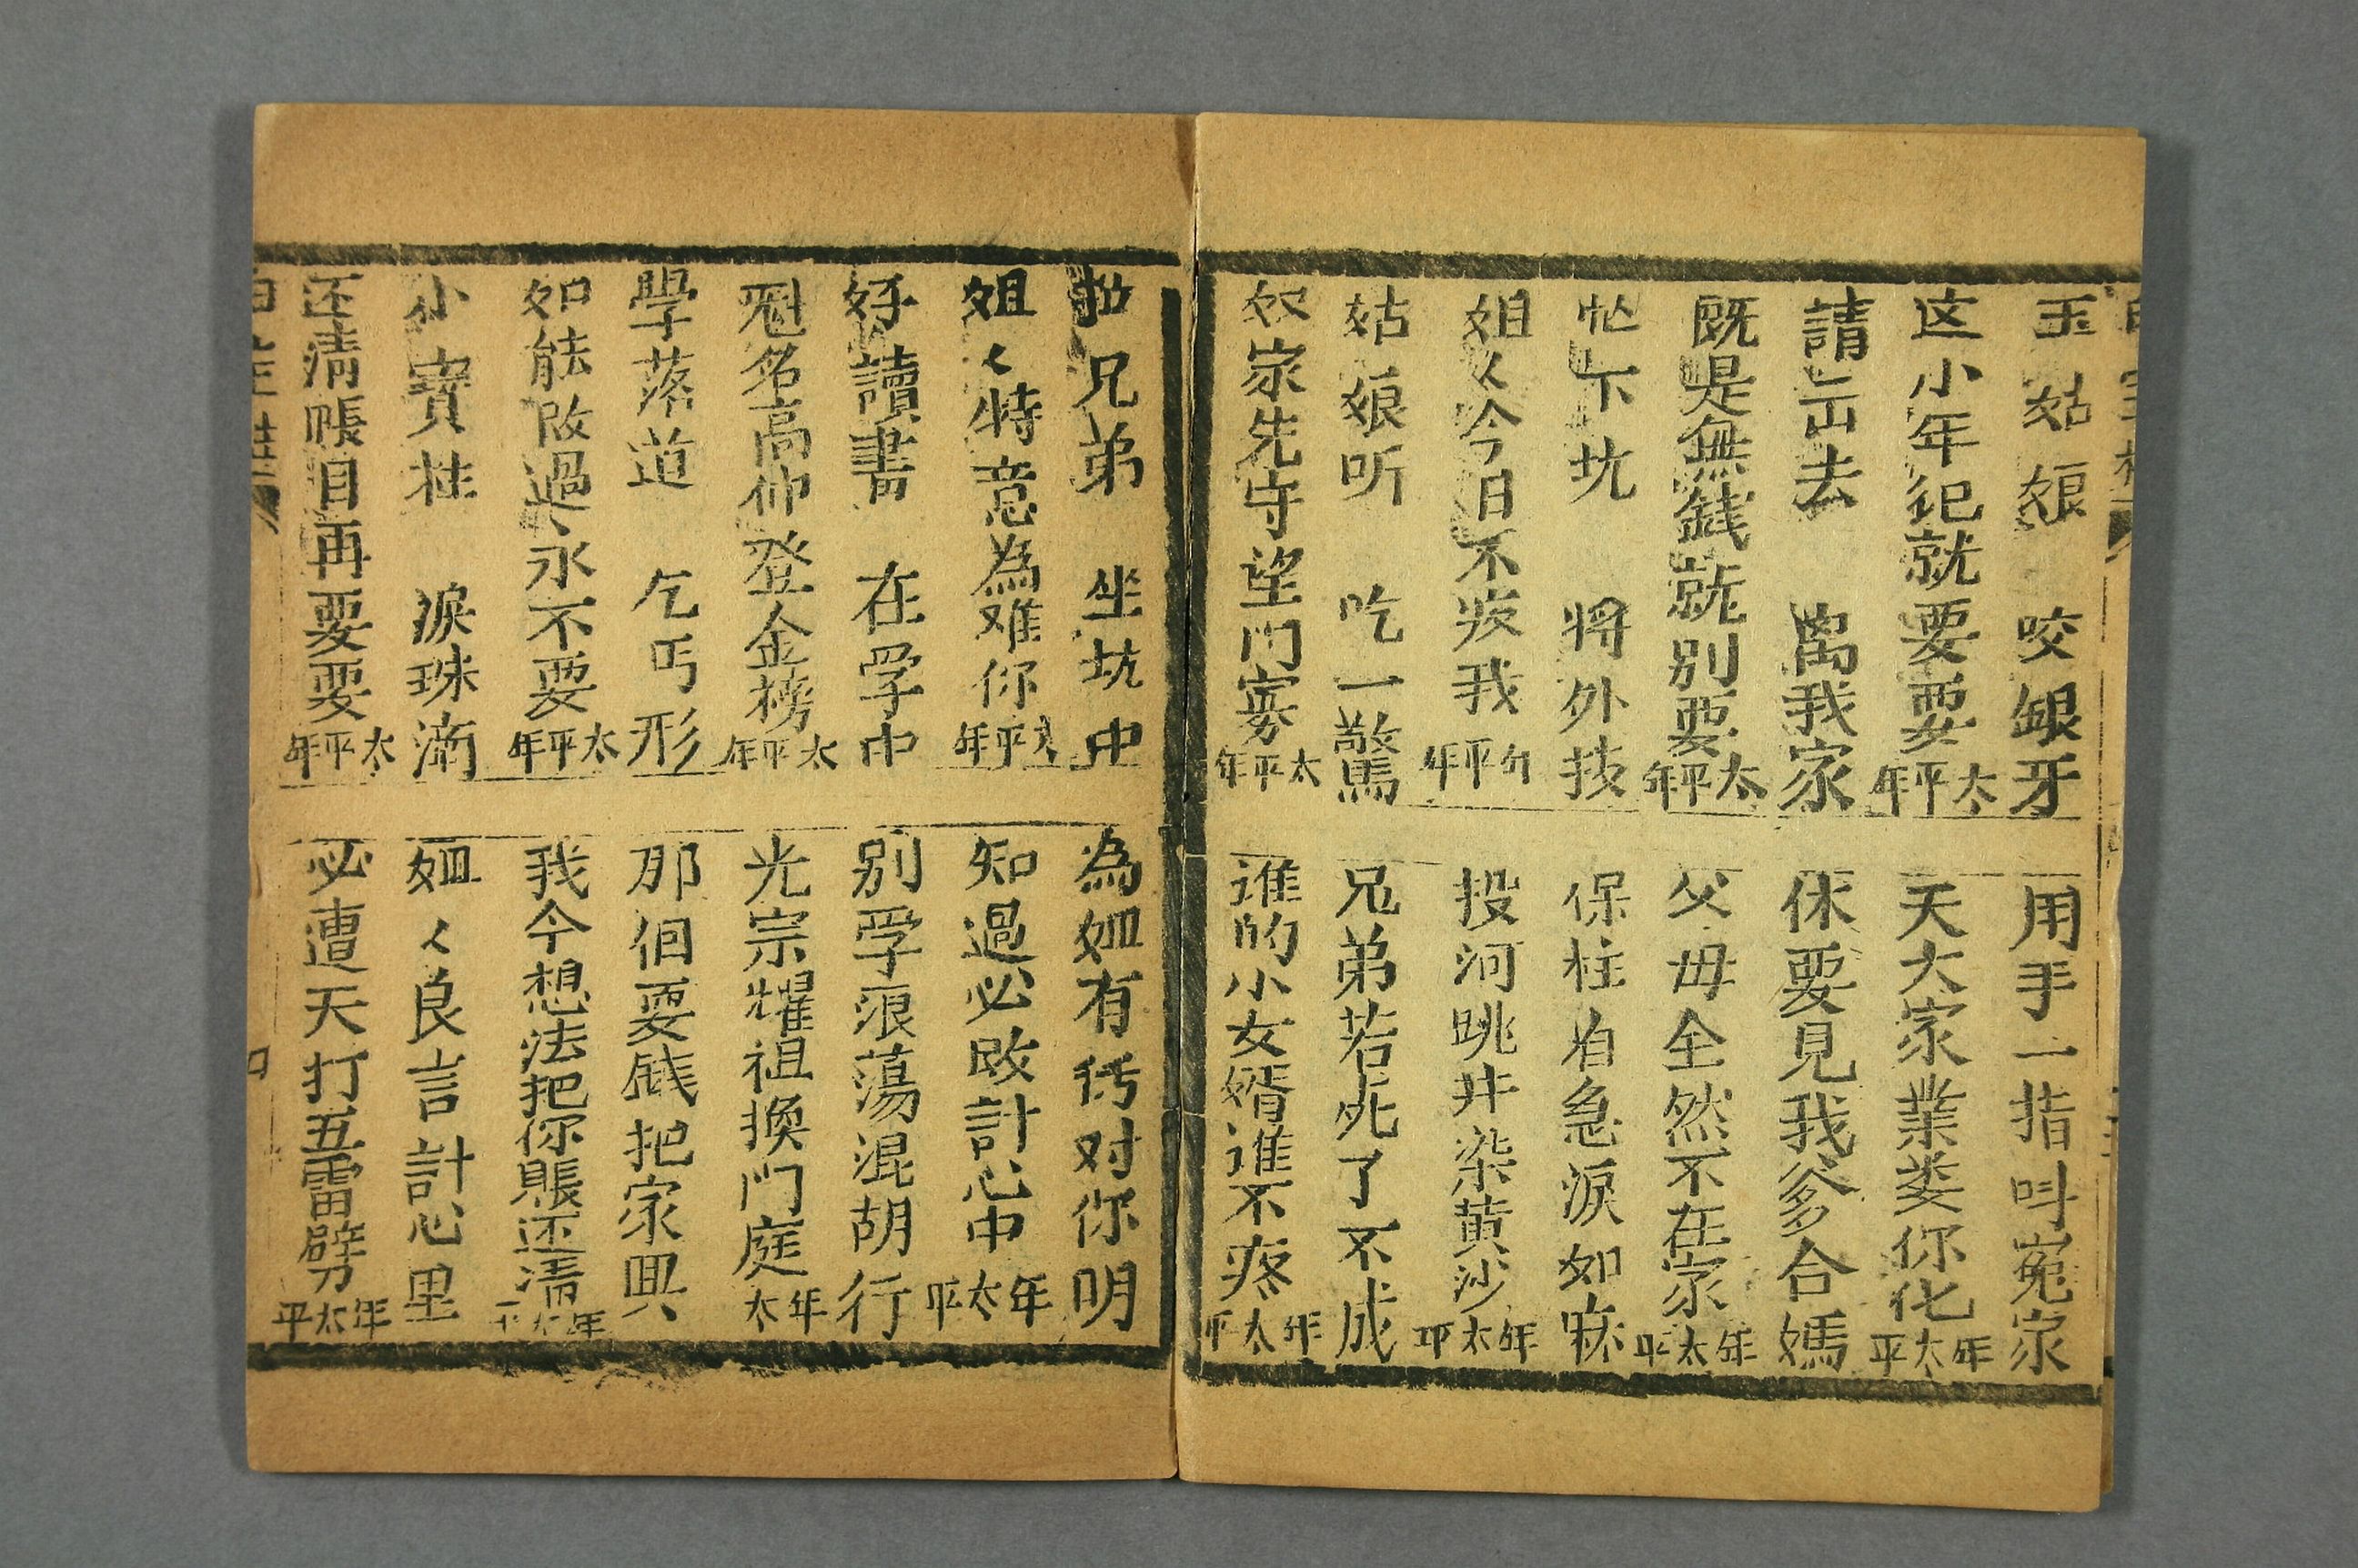 玉姑娘　咬銀牙　用手一指叫冤家
这小年纪就要要太平年　天大家業娄你化年太平
請出去　离我家　休要見我爹合媽
既是無銭就别要太平年　父母全然不在家年太平
忙下坑　将外技　保柱自急淚如麻
姐々今日不疼我　平年　投河跳井染黄沙年太平
姑娘听　吃一驚　兄弟若死了不成
奴家先守望門寡太平年　谁的小女婿谁不疼年太平
拉兄弟　坐坑中　為姐有话对你明
姐々特意為难你太平年　知過必改計心中年太平
好讀書　在学中　别学浪蕩混胡行
魁名高仲登金榜太平年　光宗耀祖換門庭年太
學落道　乞丐形　那個耍銭把家興
如能改過永不耍太平年　我今想法把你賬还清年太平
小寶柱　淚珠滴　姐々良言計心里
还清賬目再要耍太平年　必遭天打五雷劈年太平